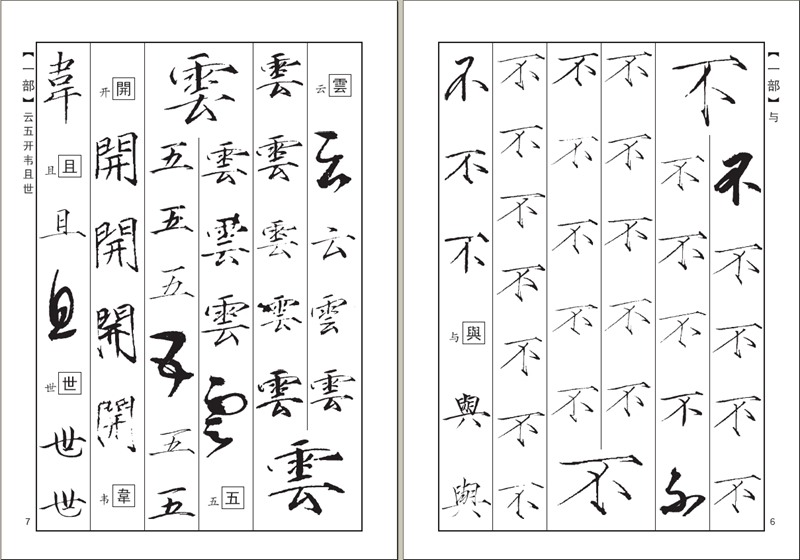 【一部】与
6
不
不不不不不
不不不不不
不不不不不
不不不不不
不
不不不不不不不
不不不
与 與
與與
【一部】云五开韦且世
7
云 雲
云云雲雲
雲雲雲雲雲
雲
雲
雲雲雲雲
五 五
五五五五五五
开 開
開開開開
韦 韋
韋
且 且
且且
世 世
世世